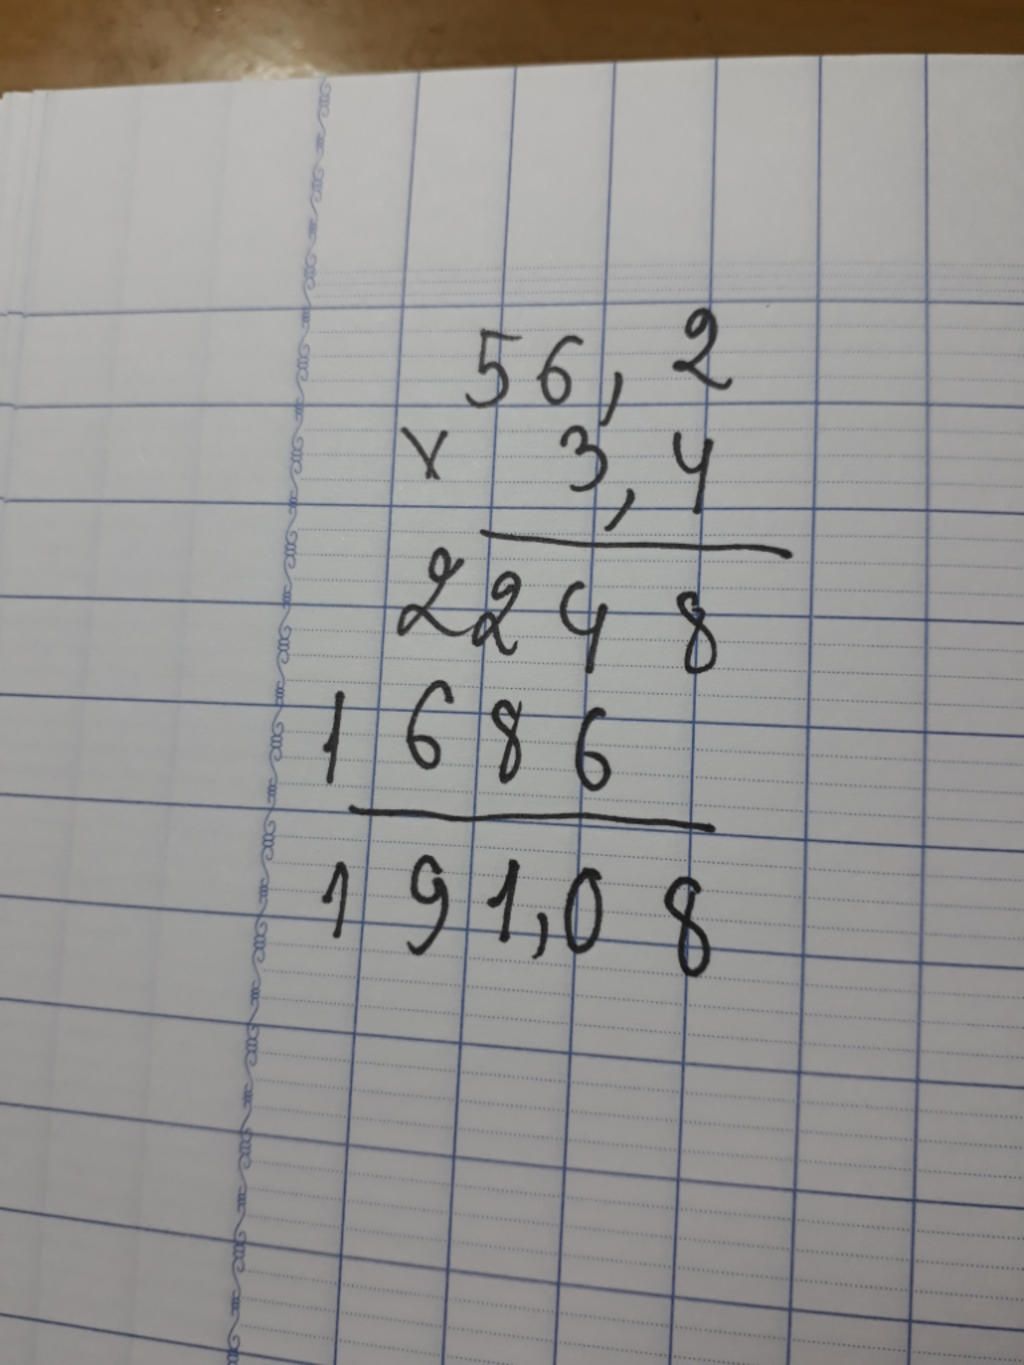 56,2
x 3,4
2248
1686
191,08